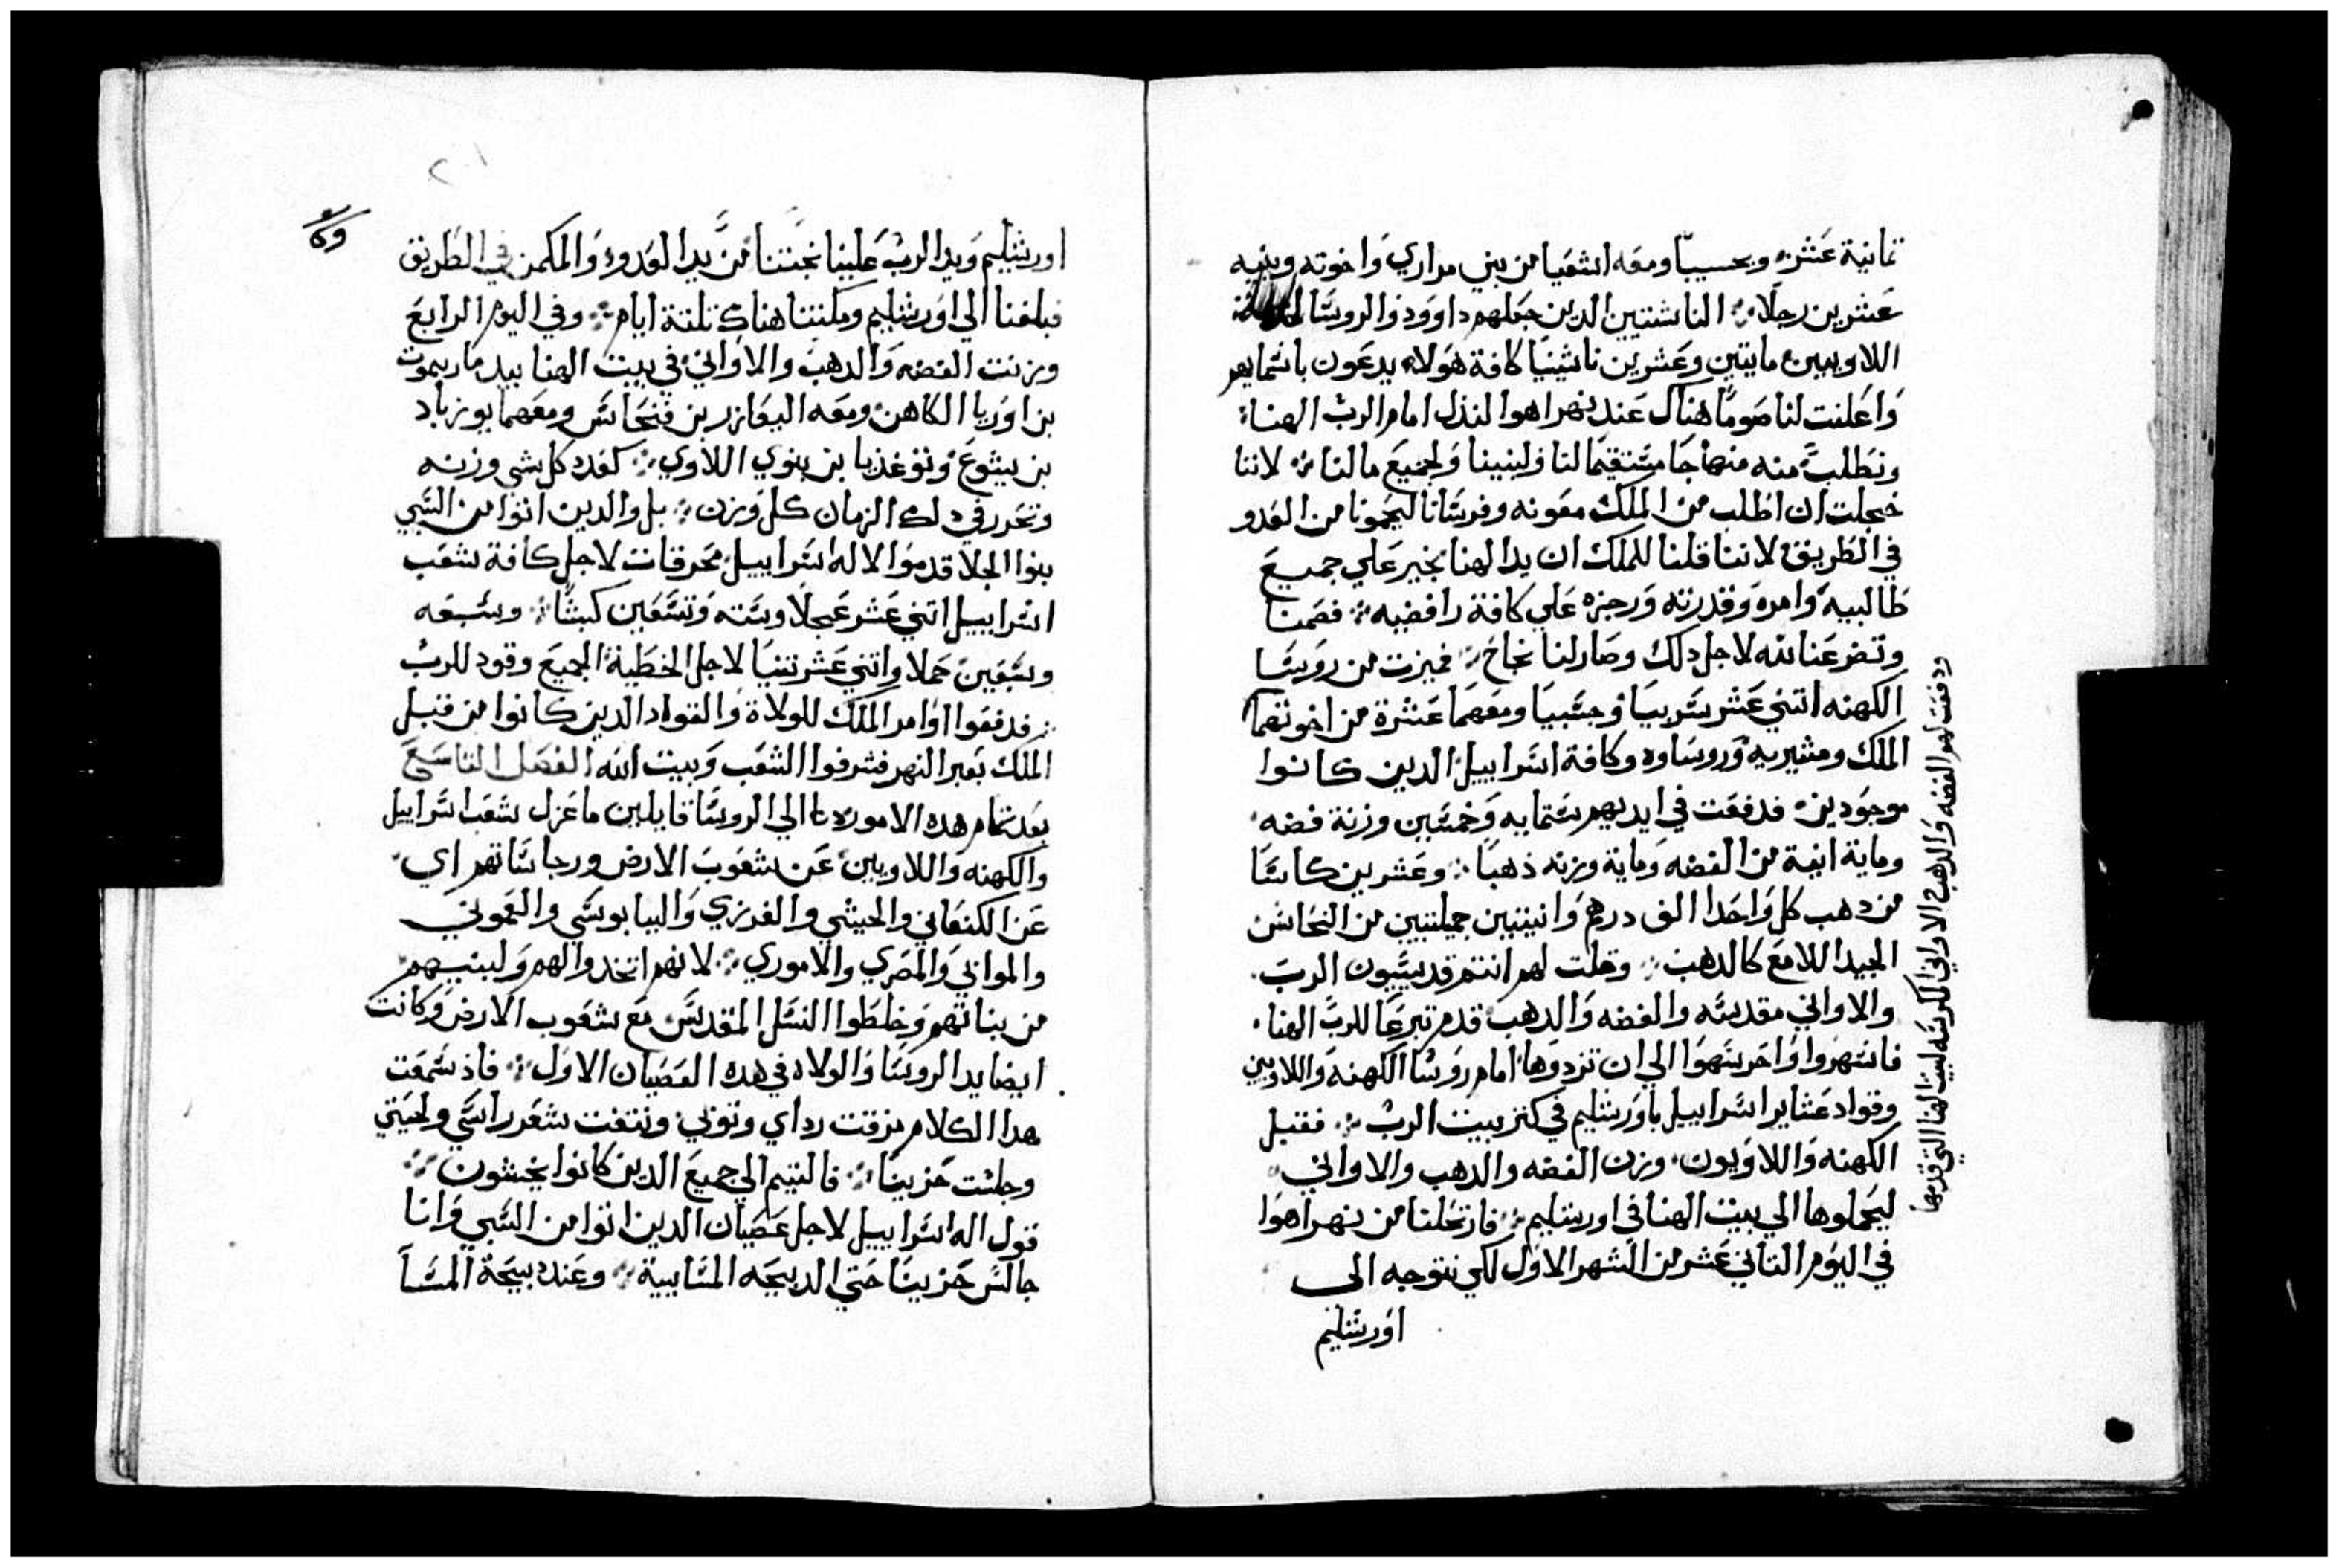 تمانية عشره وبحسبيا ومعه اشعيا من بني مراري واخوته وبنيه
عشرين رجلا ⁘ الناشنيين الدين جعلهم داوود والروسا
اللاويين مايتين وعشرين ناثينيا كافة هولاء يدعون باسمايهم
واعلنت لنا صوما هناك عند نهر اهوا لنذل امام الرب الهنا
ونطلب منه منهاجا مستقيما لنا ولبنينا ولجميع مالنا ⁘ لاننا
خجلت ان اطلب من الملك معونه وفرسانا ليحمونا من العدو
في الطريق لاننا قلنا للملك ان يد الهنا بخير علي جميع
طالبيه وامره وقدرته ورجزه علي كافة رافضيه ⁘ فصمنا
وتضرعنا لله لاجل دلك وصار لنا نجاح ⁘ فميزت من روسا
الكهنه اتني عشر سريبيا وحسبيا ومعهما عشرة من اخوتهما
الملك ومشيريه وروساوه وكافة اسراييل الدين كانوا
موجودين فدفعت في ايديهم ستمايه وخمسين وزنة فضه
وماية انية من الفضه وماية وزنه ذهبا ⁘ وعشرين كاسا
من دهب كل واحدا الف درهم وانيتين جميلتين من النحاس
الجيد اللامع كالدهب ⁘ وقلت لهم انتم قديسيون الرب
والاواني مقدسه والفضه والدهب قدم تبرعا للرب الهنا
فاسهروا واحرسهوا الي ان تزدوها امام روسا الكهنه واللاويين
وقواد عشاير اسراييل باورشليم في كنز بيت الرب ⁘ فقبل
الكهنه واللاويون وزن الفضه والدهب والاواني
ليحملوها الي بيت الهنا في اورشليم ⁘ فارتحلنا من نهر اهوا
في اليوم التاني عشر من الشهر الاول لكي نتوجه الى
اورشليم
ودفعت لهم الفضه والدهب والاواني المكرسه لبيت الهنا التي قدمها
٢٠١
اورشليم ويد الرب علينا نجتنا من يد العدوه والمكمن في الطريق
فبلغنا الي اورشليم ومكتنا هناك تلتة ايام ⁘ وفي اليوم الرابع
وزنت الفضه والدهب والاواني في بيت الهنا بيد ماريموت
بن اوريا الكاهن ومعه اليعازر بن فنحاس ومعهما يوزباد
بن يشوع ونوغديا بن بنوي اللاوي ⁘ كعدد كل شي وزنه
وتحرر في دلك الزمان كل وزن ⁘ بل والدين اتوا من السبي
بنوا الجلا قدموا لاله اسراييل محرقات لاجل كافة شعب
اسراييل اتني عشر عجلا وسته وتسعين كبشا ⁘ وسبعه
وسبعين حملا واتني عشر تنيا لاجل الخطية الجميع وقود للرب
⁘ فدفعوا اوامر الملك للولاة والقواد الدين كانوا من قبل
الملك بعبر النهر فشرفوا الشعب وبيت الله الفصل التاسع
بعد تمام هده الامور دنا الي الروسا قايلين ما عزل شعب اسراييل
والكهنه واللاويين عن شعوب الارض ورجاساتهم اي
عن الكنعاني والحيثي والفرزي واليابوسي والعموني
والموابي والمصري والاموري ⁘ لانهم اتخدوا لهم ولبنيهم
من بناتهم وخلطوا النسل المقدس مع شعوب الارض وكانت
ايضا يد الروسا والولاه في هده العصيان الاول ⁘ فاذ سمعت
هدا الكلام مزقت رداي وتوبي ونتفت شعر راسي ولحيتي
وجلست حزينا ⁘ فالتيم الي جميع الدين كانوا يخشون
قول اله اسراييل لاجل عصيان الدين اتوا من السبي وانا
جالس حزينا حتي الدبيحه المسايية ⁘ وعند دبيحة المسا